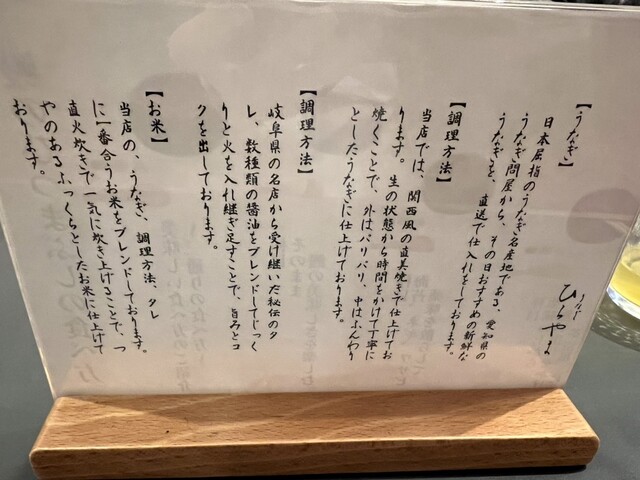 うなぎ
ひらやま
【うなぎ】
日本屈指のうなぎ名産地である、愛知県の
うなぎ問屋から、その日おすすめの新鮮な
うなぎを、直送で仕入れをしております。
【調理方法】
当店では、関西風の直美焼きで仕上げてお
ります。生の状態から時間をかけて丁寧に
焼くことで、外はパリパリ、中はふんわり
としたうなぎに仕上げております。
【調理方法】
岐阜県の名店から受け継いだ秘伝のタ
レ、数種類の醤油をブレンドしてじっく
りと火を入れ継ぎ足すことで、旨みとコ
クを出しております。
【お米】
当店の、うなぎ、調理方法、タレ
に一番合うお米をブレンドしております。
直火炊きで一気に炊き上げることで、つ
やのあるふっくらとしたお米に仕上げて
おります。